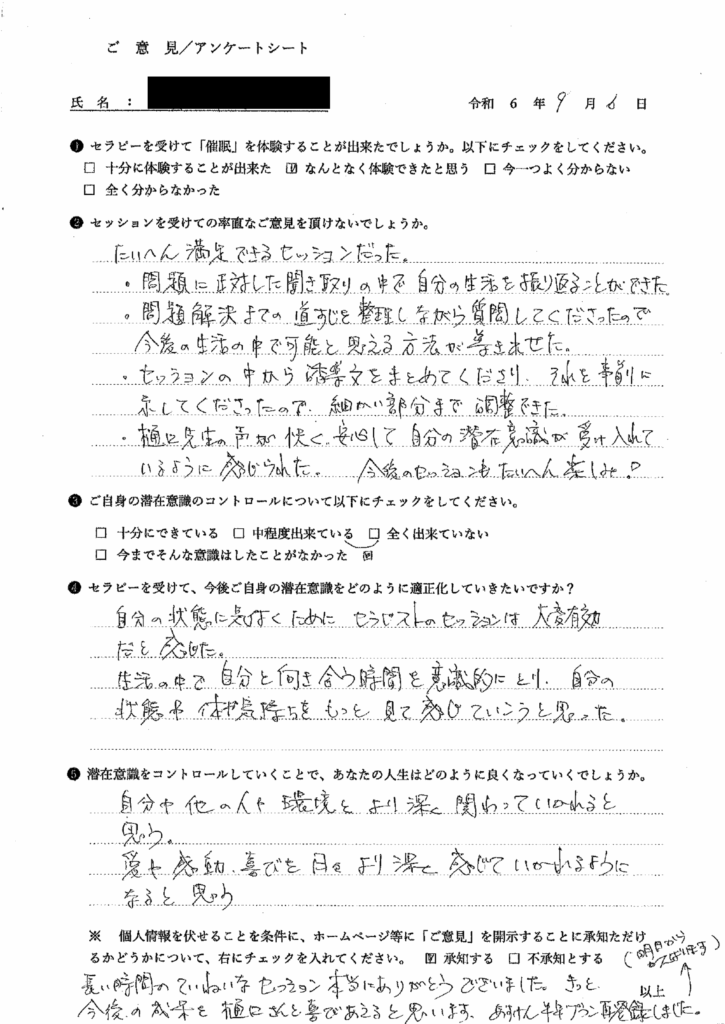 ご 意 見／アンケートシート
氏 名 ：
令和 6 年 9 月 6 日
❶ セラピーを受けて「催眠」を体験することが出来たでしょうか。以下にチェックをしてください。
□ 十分に体験することが出来た ☑ なんとなく体験できたと思う □ 今一つよく分からない
□ 全く分からなかった
❷ セッションを受けての率直なご意見を頂けないでしょうか。
たいへん満足できるセッションだった。
・問題に正対した聞き取りの中で自分の生活を振り返ることができた
・問題解決までの道すじを整理しながら質問してくださったので
今後の生活の中で可能と思える方法が導き出せた。
・セッションの中から 誘導文をまとめてくださり、それを事前に
示してくださったので、細かい部分まで調整できた。
・樋口先生の声が快く、安心して自分の潜在意識が受け入れて
いるように感じられた。 今後のセッションもたいへん楽しみ!
❸ ご自身の潜在意識のコントロールについて以下にチェックをしてください。
□ 十分にできている □ 中程度出来ている □ 全く出来ていない
□ 今までそんな意識はしたことがなかった ☑
❹ セラピーを受けて、今後ご自身の潜在意識をどのように適正化していきたいですか？
自分の状態に気づくために セラピストのセッションは 大変有効
だと感じた。
生活の中で 自分と向き合う時間を意識的にとり、自分の
状態や 体や気持ちを もっと 見て感じていこうと思った。
❺ 潜在意識をコントロールしていくことで、あなたの人生はどのように良くなっていくでしょうか。
自分や他の人や 環境と より深く 関わっていかれると
思う。
愛や感動、喜びを 日々 より深く 感じて いかれるように
なると 思う
※ 個人情報を伏せることを条件に、ホームページ等に「ご意見」を開示することに承知ただけ
るかどうかについて、右にチェックを入れてください。 ☑ 承知する □ 不承知とする
(明日から
がんばります)
以上
長い時間の ていねいな セッション 本当にありがとうございました。きっと
今後の成果を 樋口さんと喜びあえると思います。 半年プラン 再登録しました。